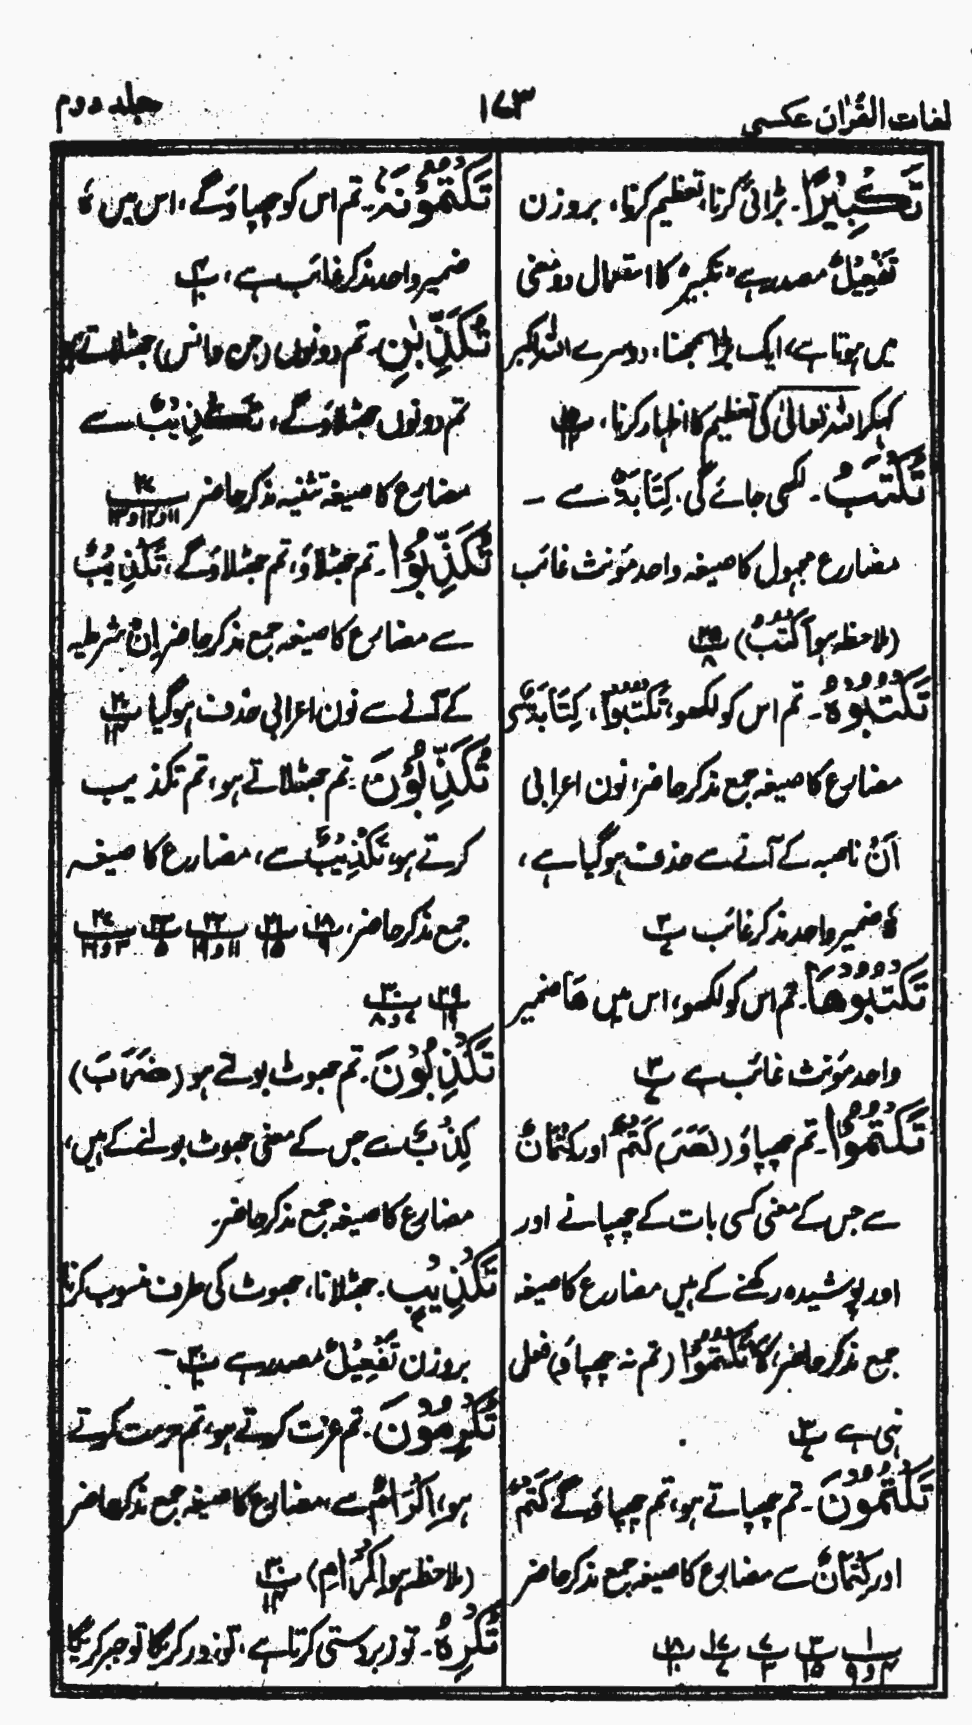 لغات القرآن عکسی
۱۷۳
جلد دوم
تَکْبِیْرًا۔ بڑائی کرنا، تعظیم کرنا، بروزن
تَفْعِیْلٌ مصدر ہے، تکبیر، کا استعمال دو معنی
میں ہوتا ہے، ایک بڑا سمجھنا، دوسرے اللہ اکبر
کہکر اللہ تعالیٰ کی تعظیم کا اظہار کرنا،
تُکْتَبُ۔ لکھی جائے گی، کِتَابَۃٌ سے ۔
مضارع مجہول کا صیغہ واحد مؤنث غائب
(ملاحظہ ہو اَکْتُبُ) ۲۵/۸
تَکْتُبُوْہُ۔ تم اس کو لکھو، تَکْتُبُوْا، کِتَابَۃٌ سے
مضارع کا صیغہ جمع مذکر حاضر، نون اعرابی
اَنْ ناصبہ کے آنے سے حذف ہو گیا ہے،
ہٗ ضمیر واحد مذکر غائب پ۳/۷
تَکْتُبُوْھَا۔ تم اس کو لکھو، اس میں ھَا ضمیر
واحد مؤنث غائب ہے پ۳/۷
تَکْتُمُوْا۔ تم چھپاؤ (نَصَرَ) کَتْمٌ اور کِتْمَانٌ
سے جس کے معنی کسی بات کے چھپانے اور
اور پوشیدہ رکھنے کے ہیں مضارع کا صیغہ
جمع مذکر حاضر، لَا تَکْتُمُوْا (تم نہ چھپاؤ) فعل
نہی ہے پ۳/۷
تَکْتُمُوْنَ۔ تم چھپاتے ہو، تم چھپاؤ گے، کَتْمٌ
اور کِتْمَانٌ سے مضارع کا صیغہ جمع مذکر حاضر
پ۱/۴و۹ پ۳/۱۵ پ۷/۳ پ۱۷/۷ پ۱۸/۱۰
تَکْتُمُوْنَہٗ۔ تم اس کو چھپاؤ گے، اس میں ہٗ
ضمیر واحد مذکر غائب ہے، پ۴/۱۰
تُکَذِّبٰنِ۔ تم دونوں (جن و انس) جھٹلاتے ہو
تم دونوں جھٹلاؤ گے، تَکْذِیْبٌ سے
مضارع کا صیغہ تثنیہ مذکر حاضر پ۲۷/۱۱و۱۲و۱۳
تُکَذِّبُوْا۔ تم جھٹلاؤ، تم جھٹلاؤ گے، تَکْذِیْبٌ
سے مضارع کا صیغہ جمع مذکر حاضر اِنْ شرطیہ
کے آنے سے نون اعرابی حذف ہو گیا پ۲۰/۱۴
تُکَذِّبُوْنَ۔ تم جھٹلاتے ہو، تم تکذیب
کرتے ہو، تَکْذِیْبٌ سے، مضارع کا صیغہ
جمع مذکر حاضر، پ۱۸/۶ پ۲۱/۱۵ پ۲۲/۱۱و۱۹ پ۲۳/۵ پ۲۷/۳و۱۶
پ۲۹/۱۹ پ۳۰/۷و۸
تَکْذِبُوْنَ۔ تم جھوٹ بولتے ہو (ضَرَبَ)
کِذْبٌ سے جس کے معنی جھوٹ بولنے کے ہیں،
مضارع کا صیغہ جمع مذکر حاضر۔
تَکْذِیْبٍ۔ جھٹلانا، جھوٹ کی طرف منسوب کرنا
بروزن تَفْعِیْلٌ مصدر ہے پ۳۰/۱۰ ۔
تُکْرِمُوْنَ۔ تم عزت کرتے ہو، تم حرمت کرتے
ہو، اِکْرَامٌ سے، مضارع کا صیغہ جمع مذکر حاضر
(ملاحظہ ہو اِکْرَامِ) پ۳۰/۱۴
تُکْرِہُ۔ تو زبردستی کرتا ہے، تو زور کریگا تو جبر کریگا